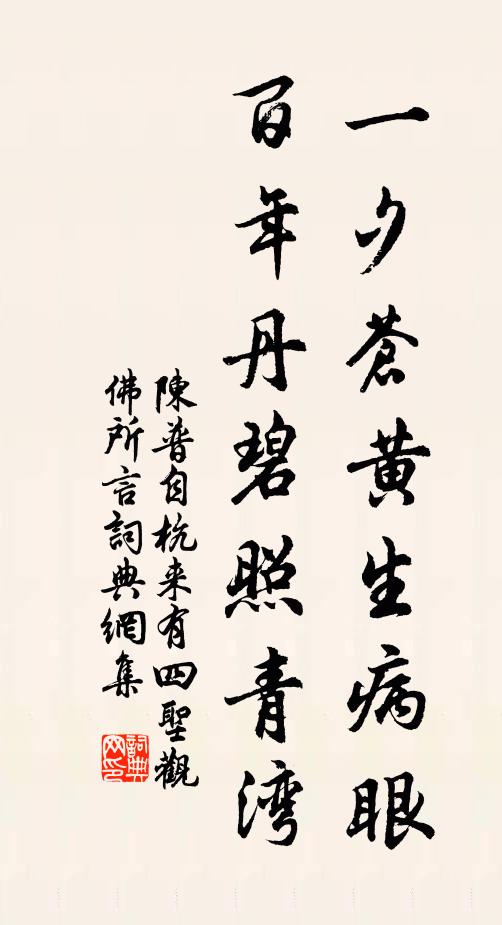 一夕蒼黃生病眼
百年丹碧照青湾
陳普自杭来有四聖觀
佛所言詞典網集
詞典網印